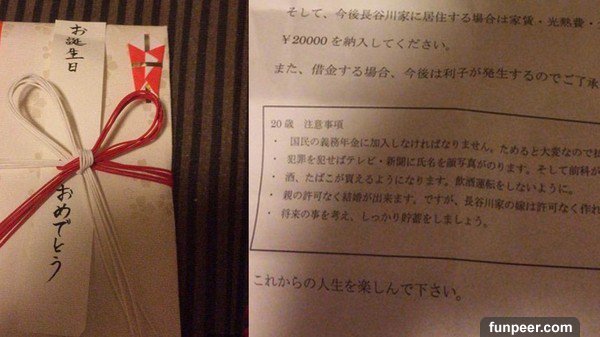 お誕生日
おめでとう
そして、今後長谷川家に居住する場合は家賃・光熱費・
￥20000 を納入してください。
また、借金する場合、今後は利子が発生するのでご了承
20歳　注意事項
・ 国民の義務年金に加入しなければなりません。ためると大変なので
・ 犯罪を犯せばテレビ・新聞に氏名を顔写真がのります。そして前科が
・ 酒、たばこが買えるようになります。飲酒運転をしないように。
・ 親の許可なく結婚が出来ます。ですが、長谷川家の嫁は許可なく作れ
・ 将来の事を考え、しっかり貯蓄をしましょう。
これからの人生を楽しんで下さい。
funpeer.com